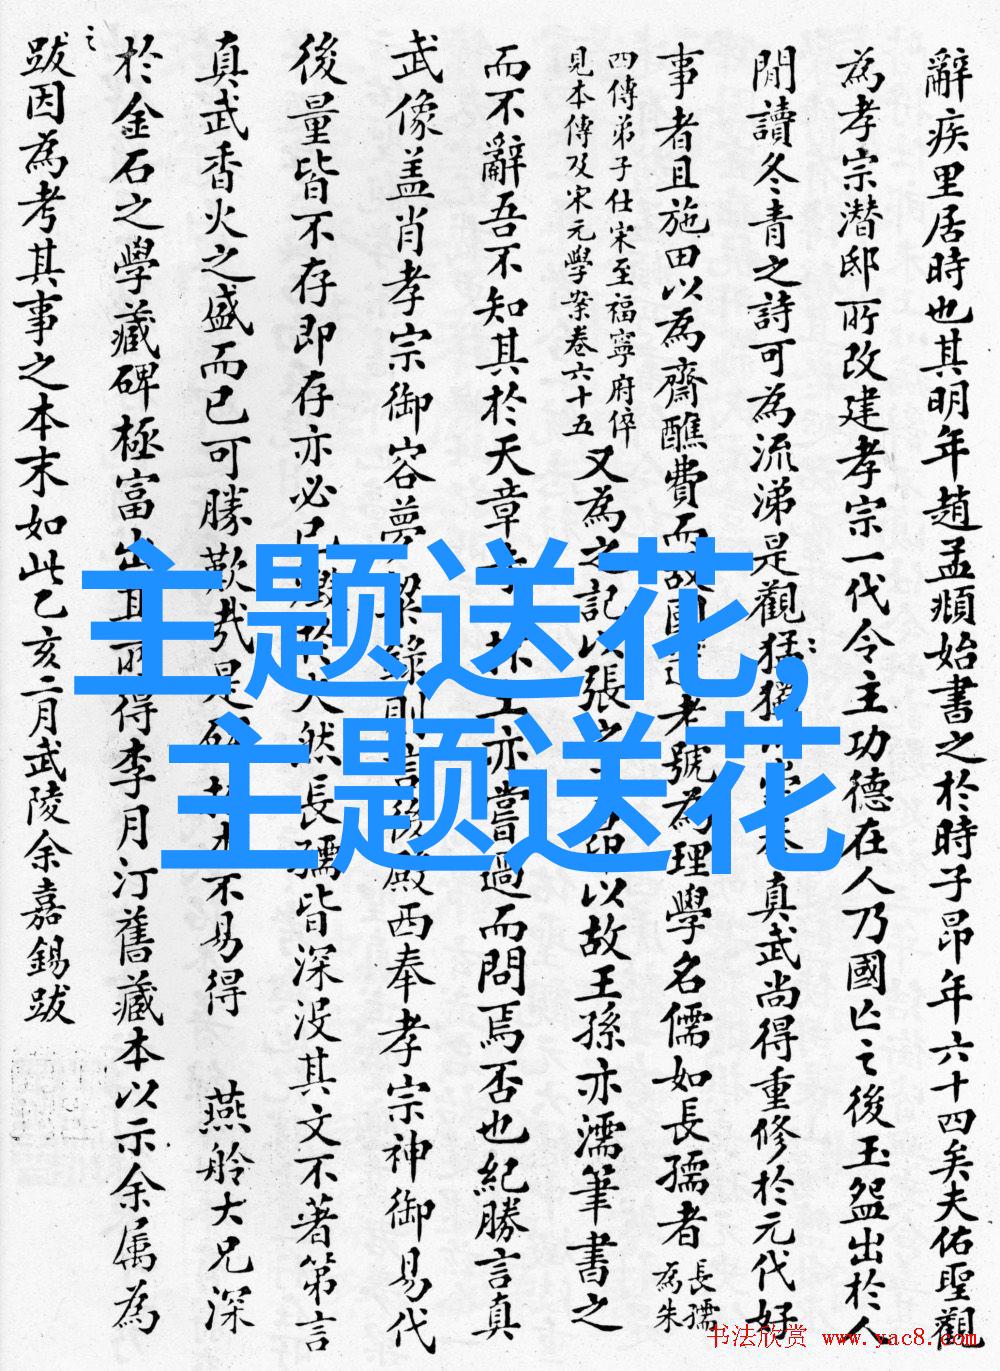 辭疾里居時也其明年趙孟頫始書之於時子昂年六十四矣夫佑聖觀
為孝宗潛邸所改建孝宗一代令主功德在人乃國亡之後玉盌出於人
閒讀冬青之詩可為流涕是觀猛 真武尚得重修於元代好
事者且施田以為齋醮費而 老號為理學名儒如長孺者長孺為朱
四傳弟子仕宋至福寧府倅
見本傳及宋元學案卷六十五
又為之記以張之 以故王孫亦濡筆書之
而不辭吾不知其於天章 亦嘗過而問焉否也紀勝言真
武像蓋肖孝宗御容夢粱錄則言後殿西奉孝宗神御易代
後量皆不存即存亦必已 然長孺皆深沒其文不著第言
真武香火之盛而已可勝歎哉是 不易得 燕舲大兄深
於金石之學藏碑極富出其所得李月汀舊藏本以示余属為
之
跋因為考其事之本末如此乙亥二月武陵余嘉錫跋
主题送花,
主题送花
书法欣赏 www.yac8.com